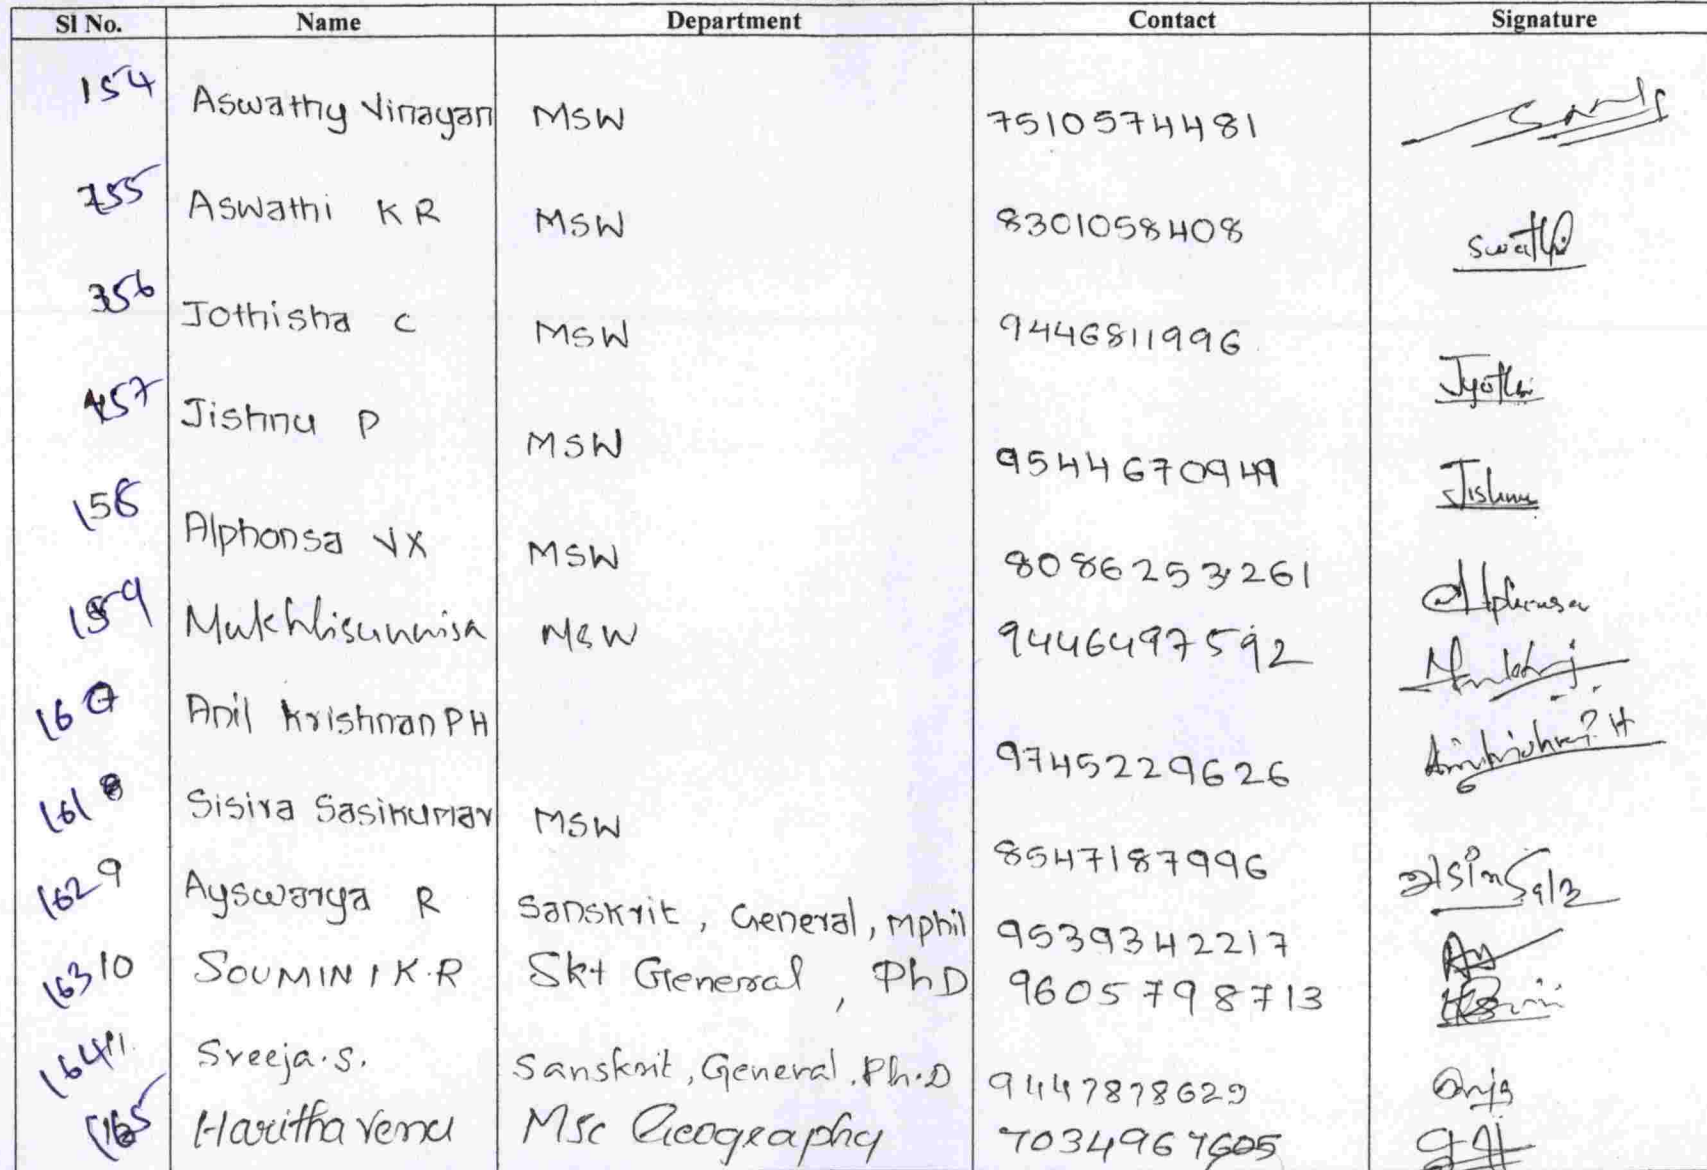 Sl No. Name Department Contact Signature
154 Aswathy Vinayan MSW 7510574481
155 Aswathi K R MSW 8301058408 Swathi
156 Jothisha C MSW 9446811996 Jyothi
157 Jishnu P MSW 9544670949 Jishnu
158 Alphonsa VX MSW 8086253261 Alphonsa
159 Mukhlisunnisa MSW 9446497592
160 Anil Krishnan PH 9745229626
161 8 Sisira Sasikumar MSW 8547187996
162 9 Ayswarya R Sanskrit, General, Mphil 9539342217
163 10 SOUMINI K.R Skt General, PhD 9605798713
164 11. Sreeja.S. Sanskrit, General, Ph.D 9447878629
165 Haritha Venu MSc Geography 7034967605